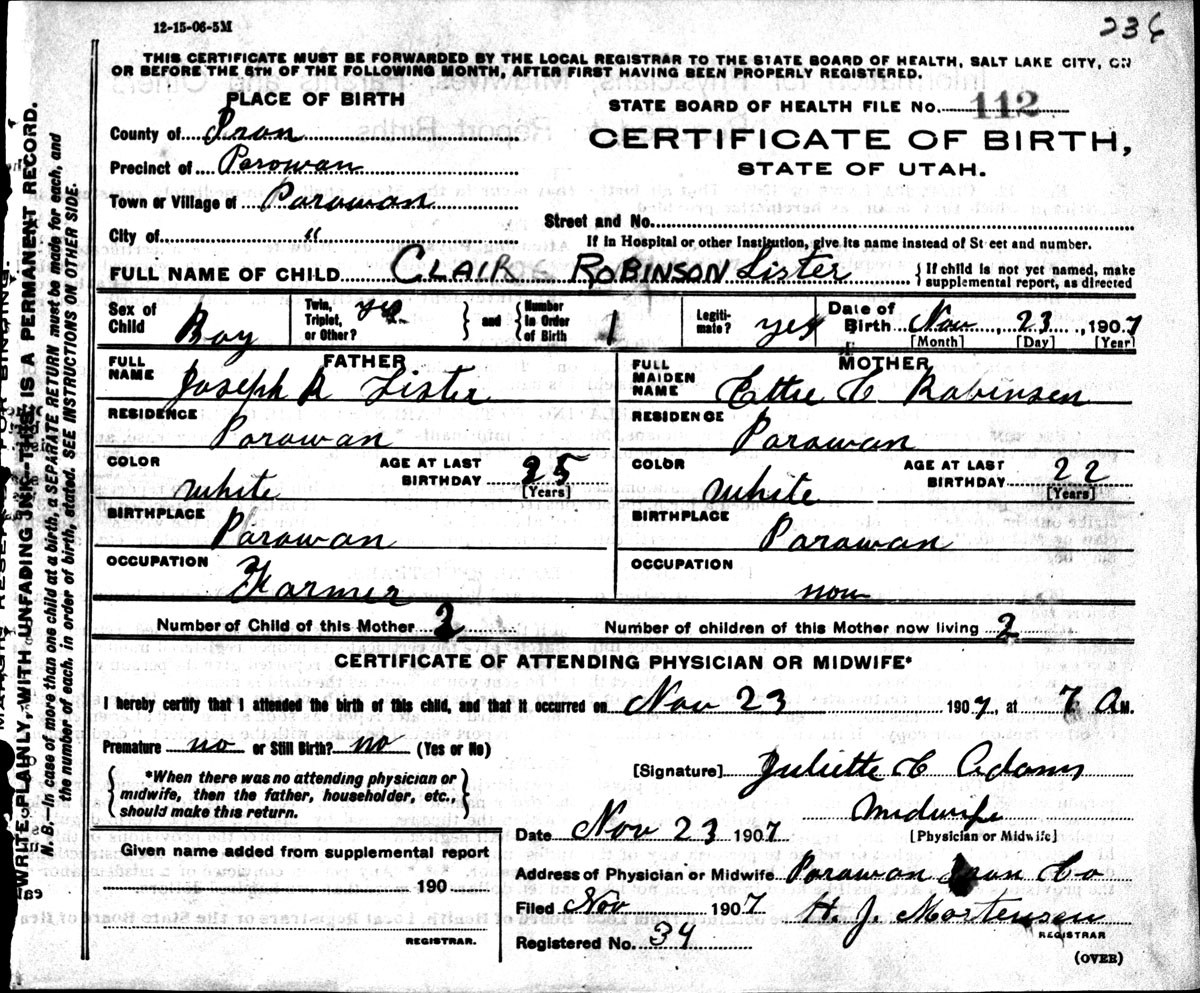 12-15-06-5M
236
THIS CERTIFICATE MUST BE FORWARDED BY THE LOCAL REGISTRAR TO THE STATE BOARD OF HEALTH, SALT LAKE CITY, ON
OR BEFORE THE 5TH OF THE FOLLOWING MONTH, AFTER FIRST HAVING BEEN PROPERLY REGISTERED.
PLACE OF BIRTH
STATE BOARD OF HEALTH FILE NO. 112
County of Iron
CERTIFICATE OF BIRTH,
Precinct of Parowan
STATE OF UTAH.
Town or Village of Parowan
Street and No.
City of "
If in Hospital or other Institution, give its name instead of Street and number.
FULL NAME OF CHILD CLAIR ROBINSON Lister {If child is not yet named, make
supplemental report, as directed
Sex of Child Boy
Twin, Triplet, or Other? yes
and Number in Order of Birth 1
Legitimate? yes
Date of Birth Nov 23, 1907
[Month] [Day] [Year]
FATHER
MOTHER
FULL NAME Joseph R Lister
FULL MAIDEN NAME Ettie C Robinson
RESIDENCE Parowan
RESIDENCE Parowan
COLOR White
AGE AT LAST BIRTHDAY 25 [Years]
COLOR White
AGE AT LAST BIRTHDAY 22 [Years]
BIRTHPLACE Parowan
BIRTHPLACE Parowan
OCCUPATION Farmer
OCCUPATION non
Number of Child of this Mother 2
Number of children of this Mother now living 2
CERTIFICATE OF ATTENDING PHYSICIAN OR MIDWIFE*
I hereby certify that I attended the birth of this child, and that it occurred on Nov 23 1907, at 7 A M.
Premature no or Still Birth? no (Yes or No)
{*When there was no attending physician or
midwife, then the father, householder, etc.,
should make this return.}
[Signature] Juliette C Adams
Midwife
[Physician or Midwife]
Date Nov 23 1907
Given name added from supplemental report
190
REGISTRAR.
Address of Physician or Midwife Parowan Iron Co
Filed Nov 1907 H. J. Mortensen
REGISTRAR
Registered No. 34
(OVER)
WRITE PLAINLY, WITH UNFADING INK—THIS IS A PERMANENT RECORD.
N. B.—In case of more than one child at a birth, a SEPARATE RETURN must be made for each, and
the number of each, in order of birth, stated. SEE INSTRUCTIONS ON OTHER SIDE.